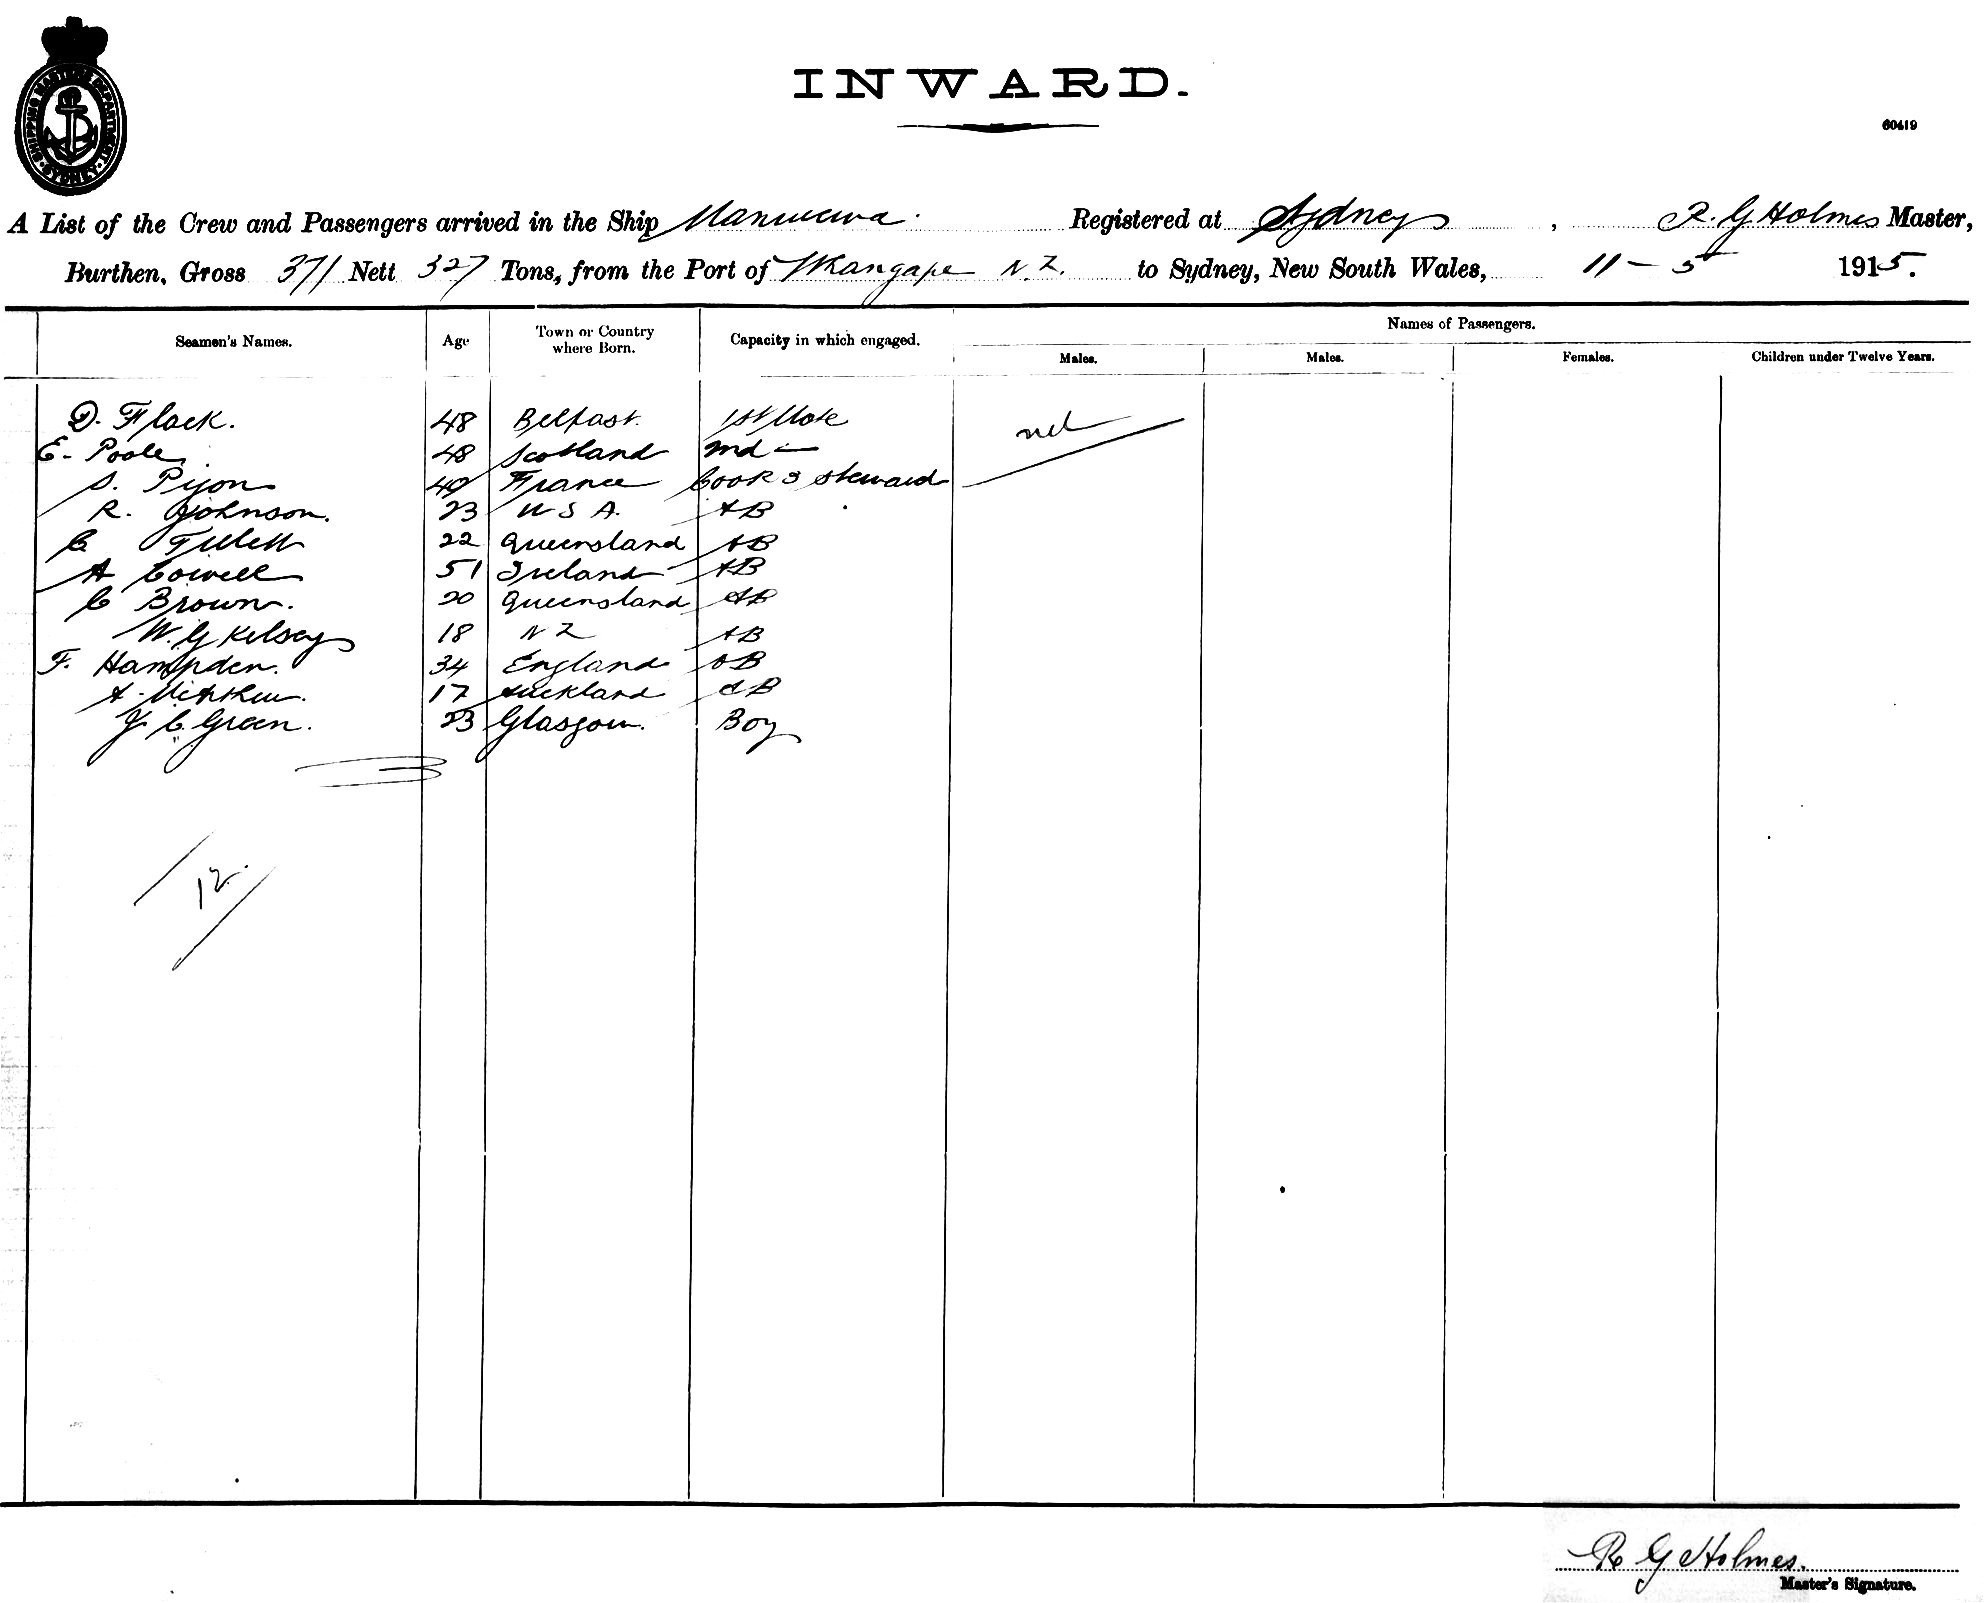 SHIPPING MASTERS DEPARTMENT SYDNEY
INWARD.
60419
A List of the Crew and Passengers arrived in the Ship Manurewa. Registered at Sydney, R. G Holmes Master,
Burthen, Gross 371 Nett 327 Tons, from the Port of Whangape N. Z. to Sydney, New South Wales, 11 - 5 1915.
Seamen's Names. Age Town or Country where Born. Capacity in which engaged. Names of Passengers.
Males. Males. Females. Children under Twelve Years.
D. Flack. 48 Belfast. 1st Mate nil
E. Poole 48 Scotland 2nd -
S. Pijon 49 France Cook & Steward
R. Johnson. 23 U S A. AB
C 22 Queensland AB
A Cowell 51 Ireland AB
C Brown. 20 Queensland AB
W. G Kelsey 18 N Z AB
F. Hampden. 34 England AB
A. 17 Auckland
J. C. Green. 23 Glasgow. Boy
12
R G Holmes.
Master's Signature.